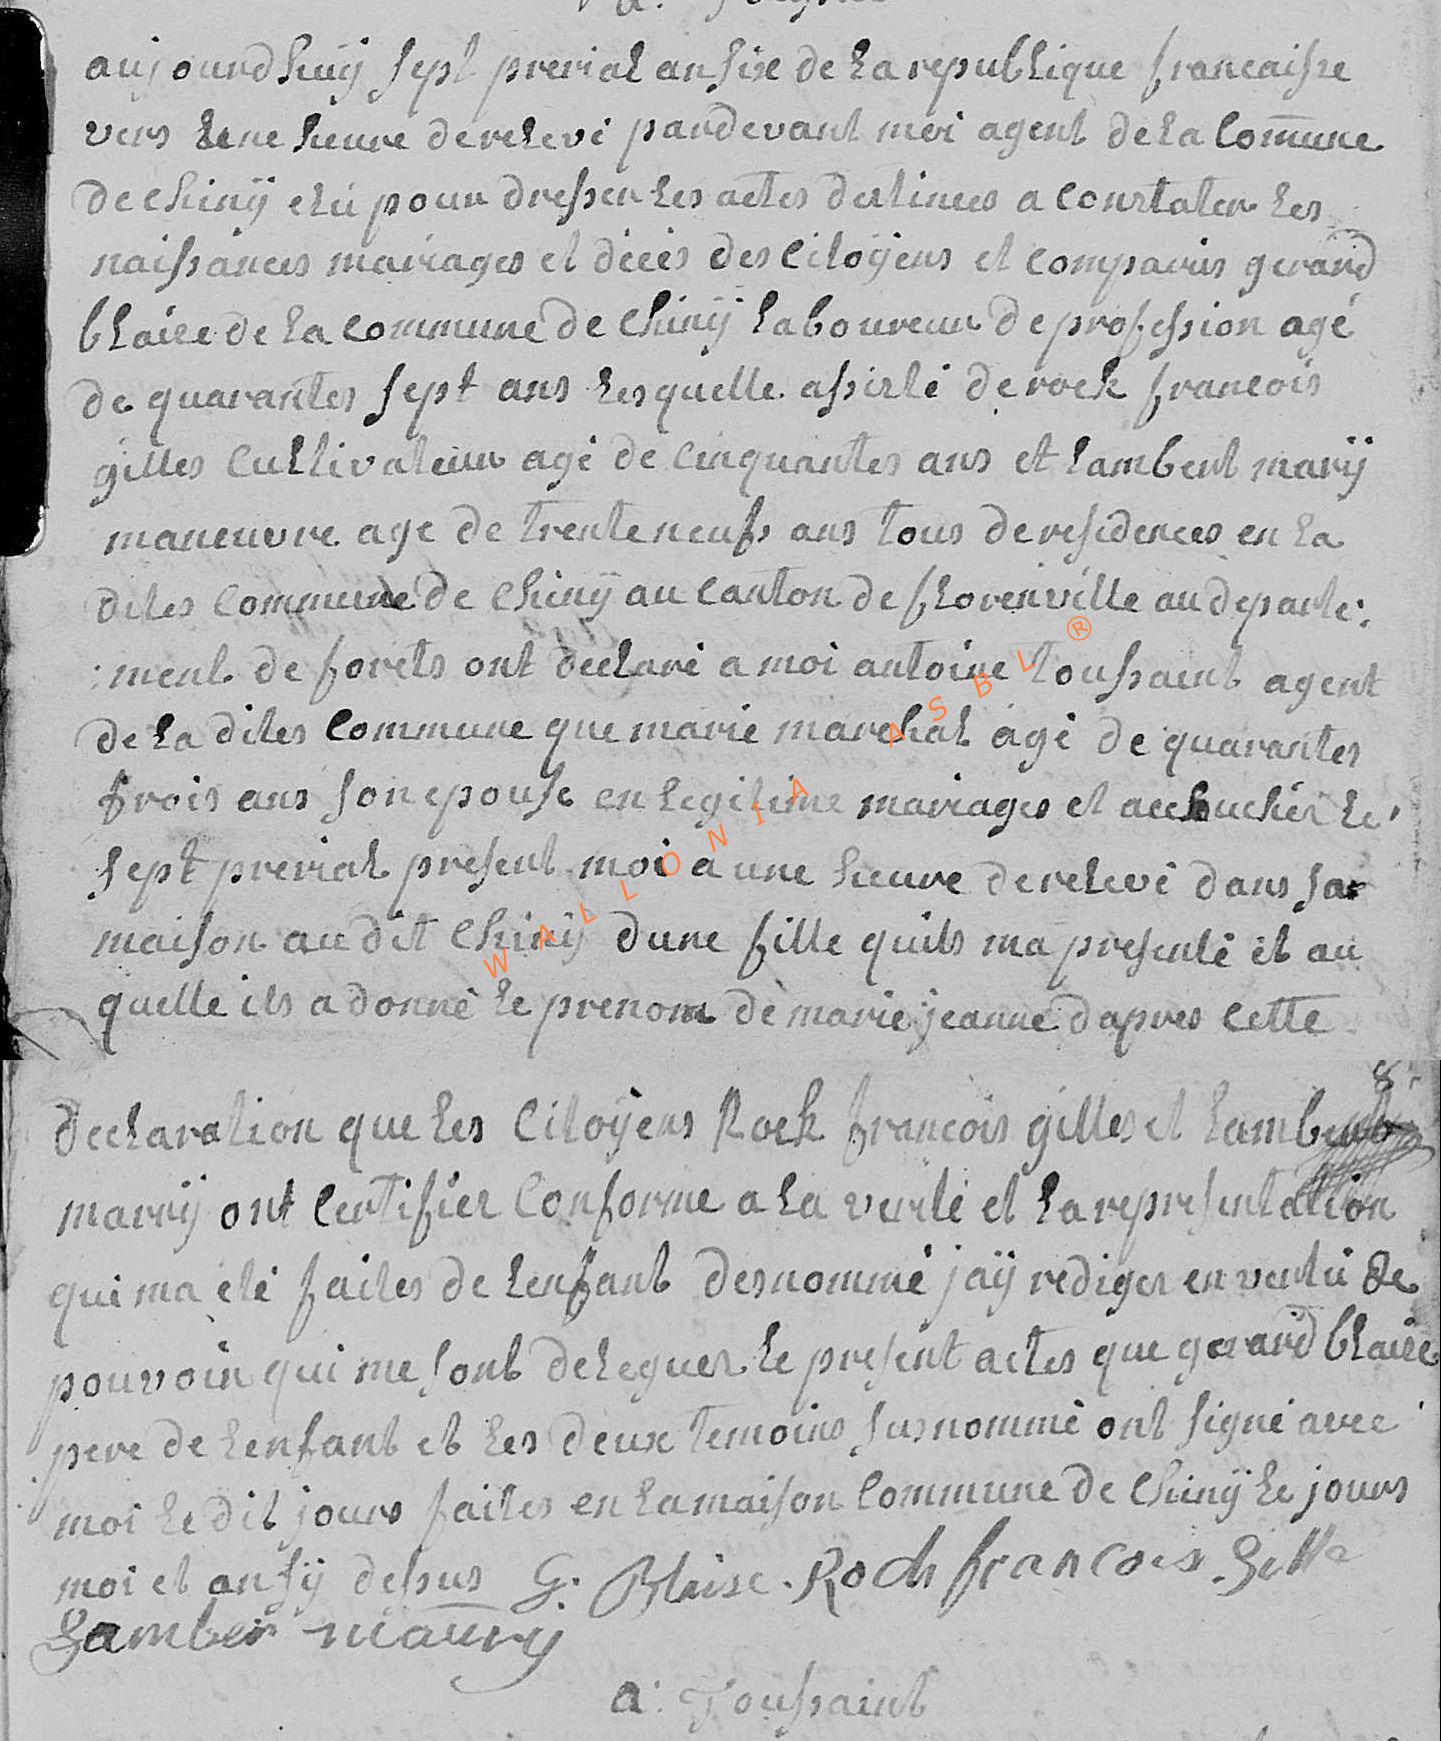 aujourdhuij sept prerial an sixe de la republique francaisse
vers une heure de relevé pardevant moi agent de la Commune
de Chinÿ elú pour dresser les actes destinees a constater les
naissances mariages et décés des Citoÿens et comparus gerard
blaise de la commune de Chinÿ laboureur de profession agé
de quarantes sept ans lesquelle assisté de rock francois
gilles Cultivateur agé de cinquantes ans et lambert marÿ
maneuvre age de trente neufs ans tous de residences en la
dites commune de Chinÿ au canton de florenville au departe:
:ment de forets ont declaré a moi antoine toussaint agent
de la dites Commune que marie marchal agé de quarantes
trois ans son epouse en legitime mariages et accouchér le
sept prerial present moi a une heure de relevé dans sa
maison au dit Chinÿ dune fille quils ma presenté et au
quelle ils a donné le prenom de marie jeanne dapres cette
8.
declaration que les Citoÿens Rock francois gilles et lambert
marrÿ ont Certifier Conforme a la verité et la representation
qui ma eté faites de lenfant desnommé jaÿ rediger en vertú de
pouvoir qui me sont deleguer le present actes que gerard blaise
pere de lenfant et les deux temoins susnommé ont signé avec
moi le dit jours faites en la maison Commune de Chinÿ le jours
moi et an sÿ dessus G. Blaise. Roch francois Gille
Lamber maury
a: Toussaint
WALLONIA ASBL ®